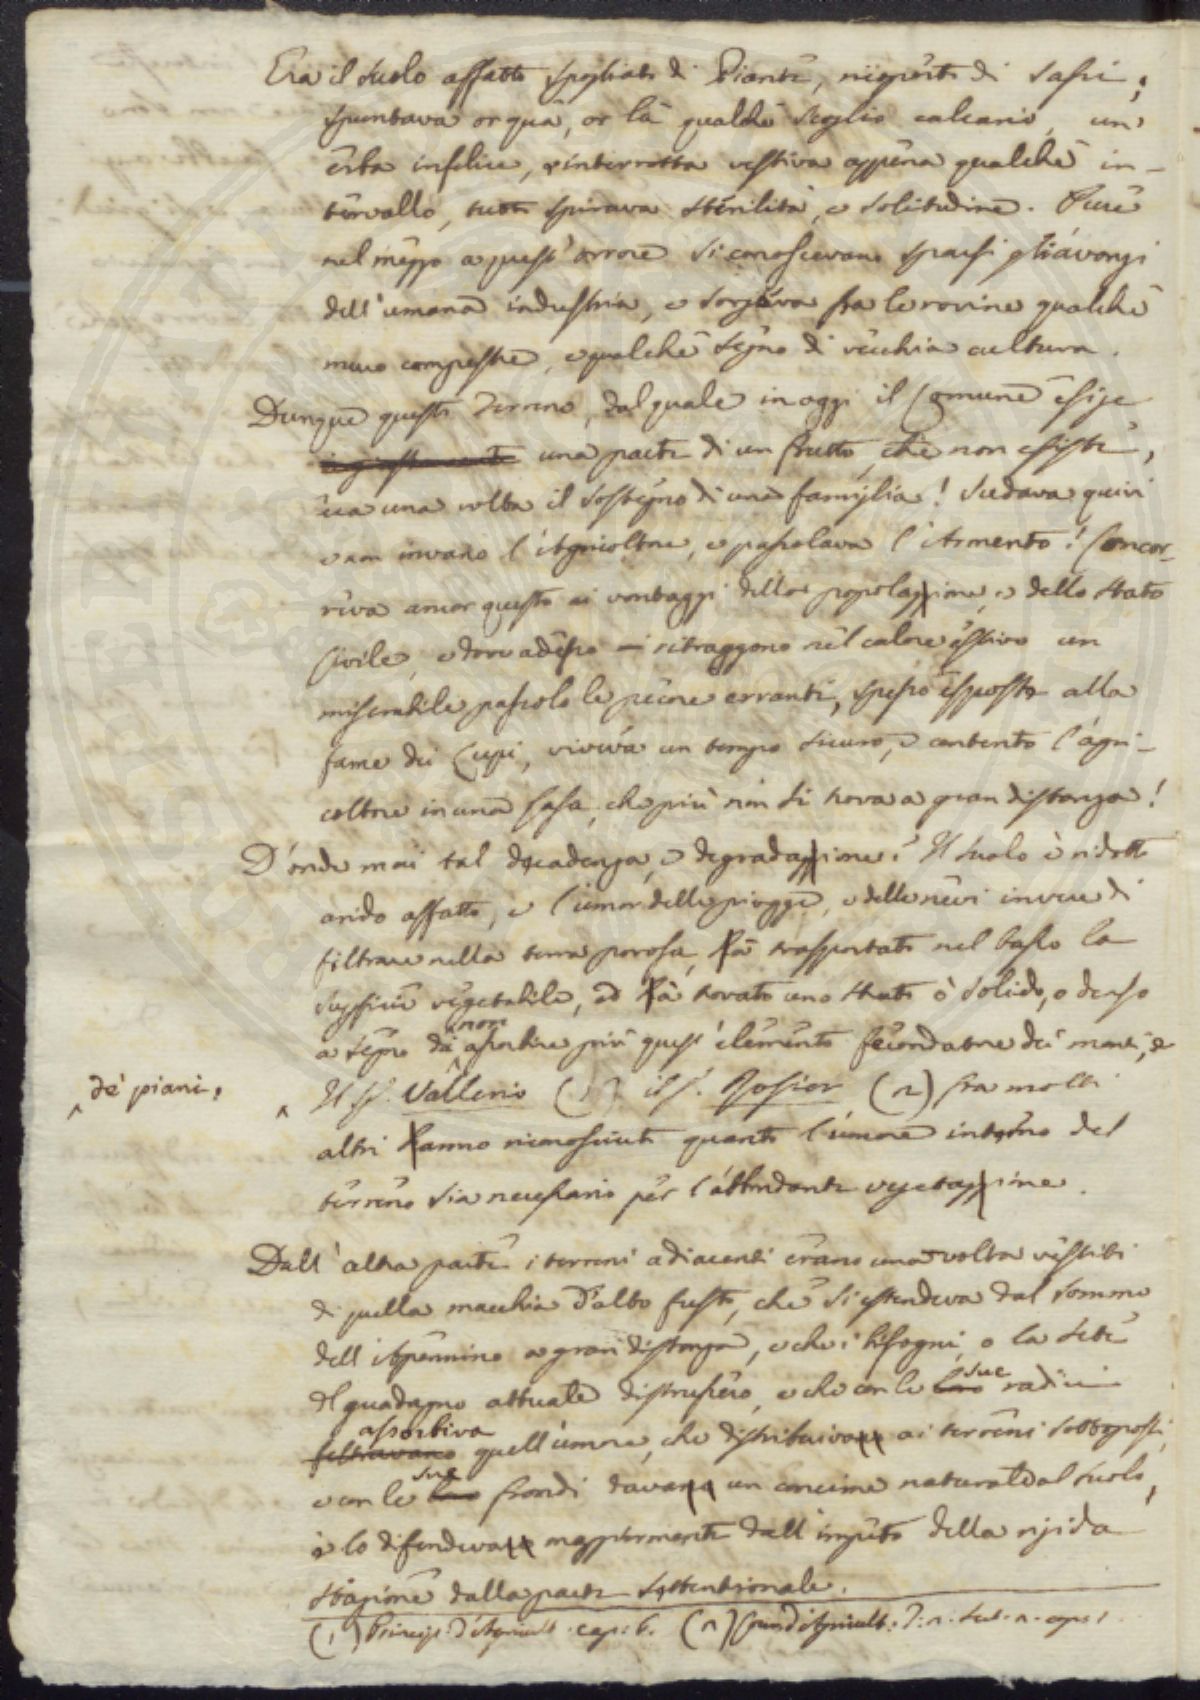 Era il suolo affatto spogliato di Piante, ricoperto di sassi;
spuntava or quà, or là qualche scoglio calcario, un'
erba infelice, e interrotta vestiva appena qualche in-
tervallo, tutto spirava sterilità, e solitudine. Pure
nel mezzo a quest'orrore si conoscevano sparsi gli avanzi
dell'umana industria, e sorgeva fra le rovine qualche
muro campestre, e qualche segno di vecchia cultura.
Dunque questo Terreno, dal quale in oggi il Comune esige
ingiustamente una parte di un frutto, che non esiste,
era una volta il sostegno di una famiglia! Sudava quivi
e non invano l'Agricoltore, e pascolava l'Armento! Concor-
reva ancor questo ai vantaggi della popolazione, e dello stato
Civile, e dove adesso ritraggono nel calore estivo un
miserabile pascolo le pecore erranti, spesso esposte alla
fame dei Lupi, viveva un tempo sicuro, e contento l'agri-
coltore in una Casa, che più non si trova a gran distanza!
D'onde mai tal decadenza, e degradazione? Il suolo è ridotto
arido affatto, e l'umor delle piogge, e delle nevi invece di
filtrare nella terra porosa, à trasportato nel basso la
 vegetabile, ed à trovato uno strato ò solido, o denso
a segno di non assorbire più quest'elemento fecondatore dei monti, e
de' piani. Il S. Vallerio (1) il S. Rosier (2) fra molti
altri anno riconosciuto quanto l'umore interno del
terreno sia necessario per l'abbondante vegetazione.
Dall'altra parte i terreni adiacenti erano una volta vestiti
di quella macchia d'alto fusto, che si estendeva dal sommo
dell'Apennino a gran distanza, e che i bisogni, o la sete
del guadagno attuale distrussero, e che con le loro sue radici
filtravano assorbiva quell'umore, che distribuiva ai terreni sottoposti,
e con le loro sue frondi dava un concime naturale al suolo,
e lo difendeva maggiormente dall'impeto della rigida
stagione dalla parte settentrionale.
(1) Princip. d'Agricult. cap. 6. (2) d'Agricult. T. 2. cap. 1.